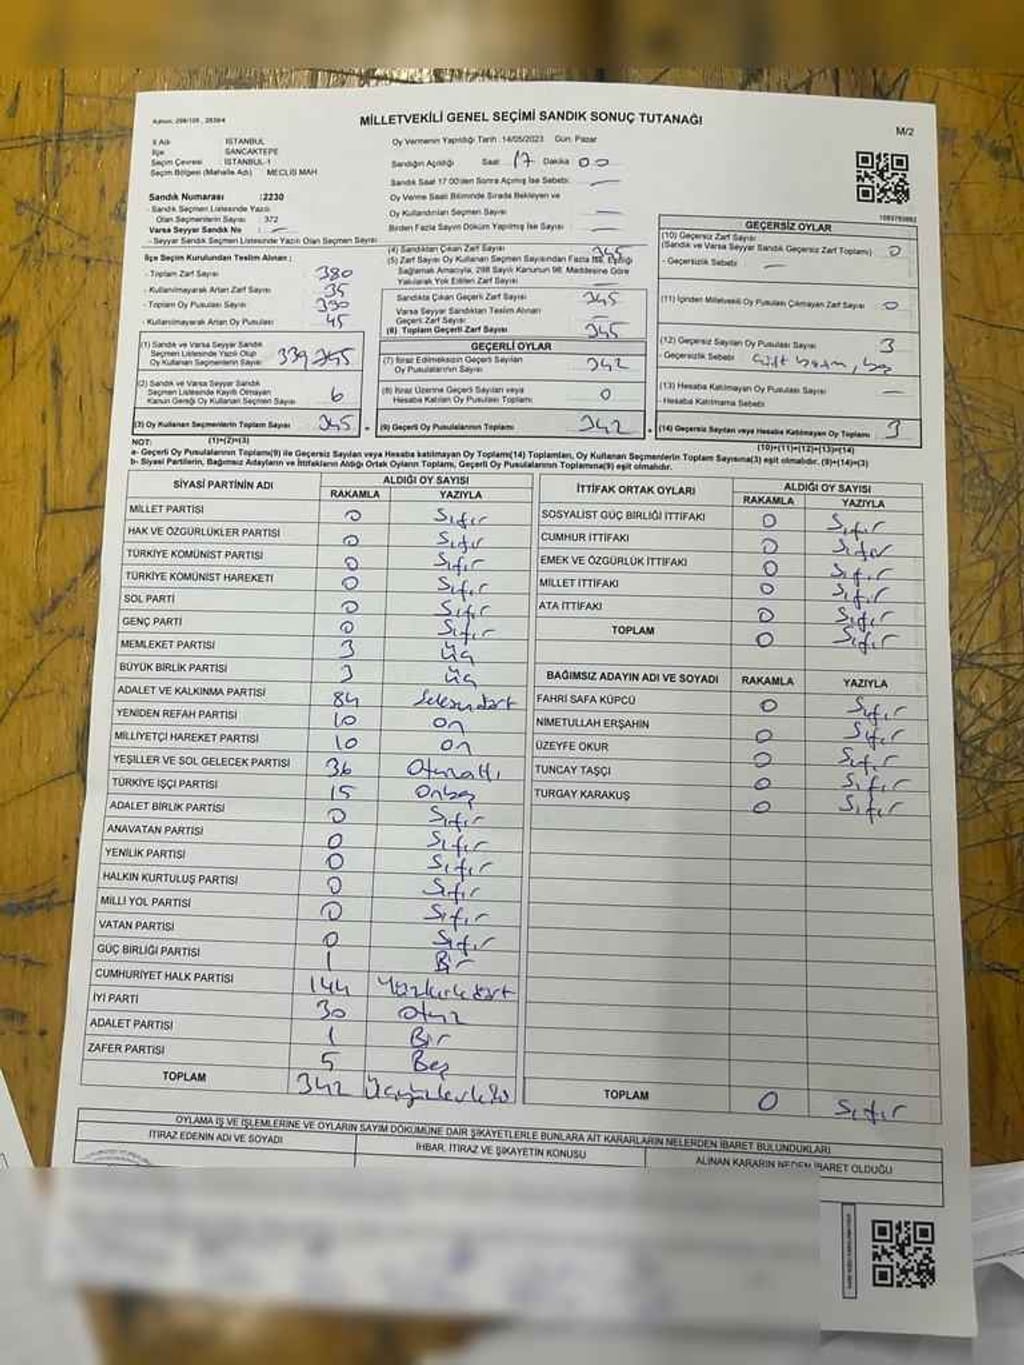 MİLLETVEKİLİ GENEL SEÇİMİ SANDIK SONUÇ TUTANAĞI
M/2
İl Adı İSTANBUL
İlçe SANCAKTEPE
Seçim Çevresi İSTANBUL-1
Seçim Bölgesi (Mahalle Adı) MECLİS MAH
Oy Vermenin Yapıldığı Tarih : 14/05/2023 Gün: Pazar
Sandığın Açıldığı Saat 17 Dakika 00
Sandık Saat 17:00'den Sonra Açılmış İse Sebebi:
Oy Verme Saati Bitiminde Sırada Bekleyen ve
Oy Kullandırılan Seçmen Sayısı
Birden Fazla Sayım Döküm Yapılmış İse Sayısı
Sandık Numarası :2230
- Sandık Seçmen Listesinde Yazılı
Olan Seçmenlerin Sayısı : 372
Varsa Seyyar Sandık No : —
- Seyyar Sandık Seçmen Listesinde Yazılı Olan Seçmen Sayısı
İlçe Seçim Kurulundan Teslim Alınan ;
- Toplam Zarf Sayısı 380
- Kullanılmayarak Artan Zarf Sayısı 35
- Toplam Oy Pusulası Sayısı 390
- Kullanılmayarak Artan Oy Pusulası 45
(1) Sandık ve Varsa Seyyar Sandık
Seçmen Listesinde Yazılı Olup
Oy Kullanan Seçmenlerin Sayısı 339
(2) Sandık ve Varsa Seyyar Sandık
Seçmen Listesinde Kayıtlı Olmayan
Kanun Gereği Oy Kullanan Seçmen Sayısı 6
(3) Oy Kullanan Seçmenlerin Toplam Sayısı 345
(1)+(2)=(3)
(4) Sandıktan Çıkan Zarf Sayısı 345
(5) Zarf Sayısı Oy Kullanan Seçmen Sayısından Fazla İse, Eşitliği
Sağlamak Amacıyla, 298 Sayılı Kanunun 98. Maddesine Göre
Yakılarak Yok Edilen Zarf Sayısı
Sandıkta Çıkan Geçerli Zarf Sayısı 345
Varsa Seyyar Sandıktan Teslim Alınan
Geçerli Zarf Sayısı —
(6) Toplam Geçerli Zarf Sayısı 345
GEÇERLİ OYLAR
(7) İtiraz Edilmeksizin Geçerli Sayılan
Oy Pusulalarının Sayısı 342
(8) İtiraz Üzerine Geçerli Sayılan veya
Hesaba Katılan Oy Pusulası Toplamı 0
(9) Geçerli Oy Pusulalarının Toplamı 342
GEÇERSİZ OYLAR
(10) Geçersiz Zarf Sayısı
(Sandık ve Varsa Seyyar Sandık Geçersiz Zarf Toplamı) 0
- Geçersizlik Sebebi —
(11) İçinden Milletvekili Oy Pusulası Çıkmayan Zarf Sayısı 0
(12) Geçersiz Sayılan Oy Pusulası Sayısı 3
- Geçersizlik Sebebi
(13) Hesaba Katılmayan Oy Pusulası Sayısı —
- Hesaba Katılmama Sebebi
(14) Geçersiz Sayılan veya Hesaba Katılmayan Oy Toplamı 3
(10)+(11)+(12)+(13)=(14)
NOT:
a- Geçerli Oy Pusulalarının Toplamı(9) ile Geçersiz Sayılan veya Hesaba katılmayan Oy Toplamı(14) Toplamları, Oy Kullanan Seçmenlerin Toplam Sayısına(3) eşit olmalıdır. (9)+(14)=(3)
b- Siyasi Partilerin, Bağımsız Adayların ve İttifakların Aldığı Ortak Oyların Toplamı, Geçerli Oy Pusulalarının Toplamına(9) eşit olmalıdır.
SİYASİ PARTİNİN ADI ALDIĞI OY SAYISI
RAKAMLA YAZIYLA
MİLLET PARTİSİ 0 Sıfır
HAK VE ÖZGÜRLÜKLER PARTİSİ 0 Sıfır
TÜRKİYE KOMÜNİST PARTİSİ 0 Sıfır
TÜRKİYE KOMÜNİST HAREKETİ 0 Sıfır
SOL PARTİ 0 Sıfır
GENÇ PARTİ 0 Sıfır
MEMLEKET PARTİSİ 3 üç
BÜYÜK BİRLİK PARTİSİ 3 üç
ADALET VE KALKINMA PARTİSİ 84 Seksendört
YENİDEN REFAH PARTİSİ 10 on
MİLLİYETÇİ HAREKET PARTİSİ 10 on
YEŞİLLER VE SOL GELECEK PARTİSİ 36 Otuzaltı
TÜRKİYE İŞÇİ PARTİSİ 15 Onbeş
ADALET BİRLİK PARTİSİ 0 Sıfır
ANAVATAN PARTİSİ 0 Sıfır
YENİLİK PARTİSİ 0 Sıfır
HALKIN KURTULUŞ PARTİSİ 0 Sıfır
MİLLİ YOL PARTİSİ 0 Sıfır
VATAN PARTİSİ 0 Sıfır
GÜÇ BİRLİĞİ PARTİSİ 1 Bir
CUMHURİYET HALK PARTİSİ 144 Yüzkırkdört
İYİ PARTİ 30 Otuz
ADALET PARTİSİ 1 Bir
ZAFER PARTİSİ 5 Beş
TOPLAM 342
İTTİFAK ORTAK OYLARI ALDIĞI OY SAYISI
RAKAMLA YAZIYLA
SOSYALİST GÜÇ BİRLİĞİ İTTİFAKI 0 Sıfır
CUMHUR İTTİFAKI 0 Sıfır
EMEK VE ÖZGÜRLÜK İTTİFAKI 0 Sıfır
MİLLET İTTİFAKI 0 Sıfır
ATA İTTİFAKI 0 Sıfır
TOPLAM 0 Sıfır
BAĞIMSIZ ADAYIN ADI VE SOYADI RAKAMLA YAZIYLA
FAHRİ SAFA KÜPCÜ 0 Sıfır
NİMETULLAH ERŞAHİN 0 Sıfır
ÜZEYFE OKUR 0 Sıfır
TUNCAY TAŞÇI 0 Sıfır
TURGAY KARAKUŞ 0 Sıfır
TOPLAM 0 Sıfır
OYLAMA İŞ VE İŞLEMLERİNE VE OYLARIN SAYIM DÖKÜMÜNE DAİR ŞİKAYETLERLE BUNLARA AİT KARARLARIN NELERDEN İBARET BULUNDUKLARI
İTİRAZ EDENİN ADI VE SOYADI İHBAR, İTİRAZ VE ŞİKAYETİN KONUSU ALINAN KARARIN NEDEN İBARET OLDUĞU